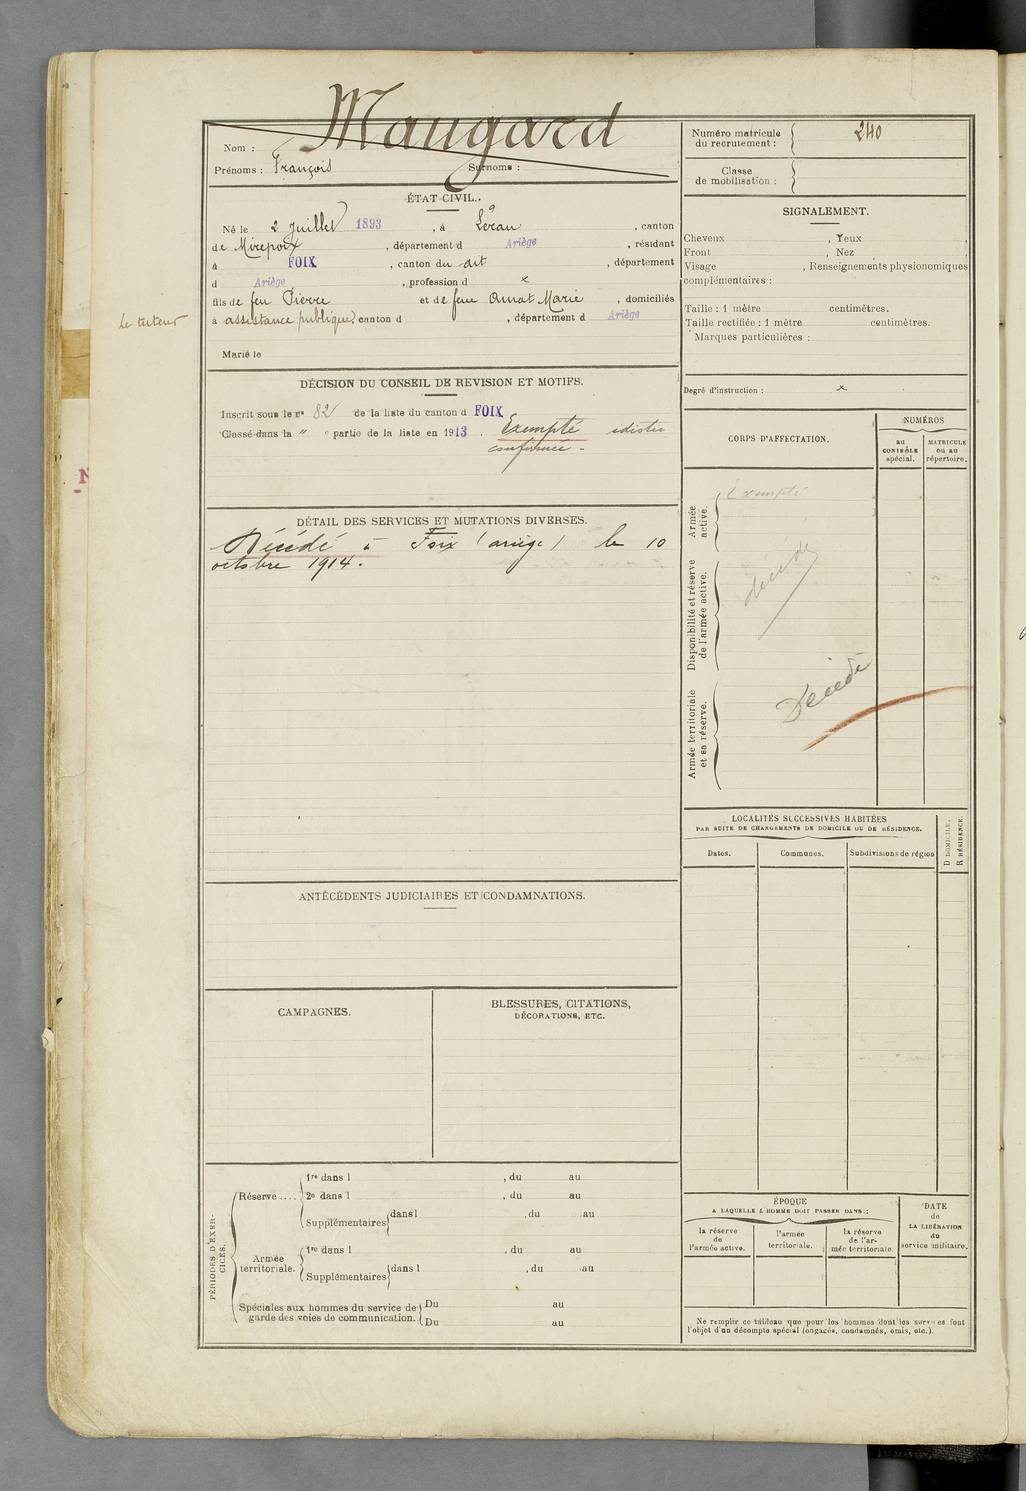 Maugard
Nom :
Prénoms : François Surnoms :
Numéro matricule du recrutement : 240
Classe de mobilisation :
ÉTAT CIVIL.
Né le 2 Juillet 1893, à Léran, canton
de Mirepoix, département d Ariège, résidant
à FOIX, canton du dit, département
d Ariège, profession d x
fils de feu Pierre et de feue Amat Marie, domiciliés
Le tuteur
à assistance publique, canton d , département d Ariège
Marié le
DÉCISION DU CONSEIL DE REVISION ET MOTIFS.
Inscrit sous le n° 82 de la liste du canton d FOIX
Classé dans la " e partie de la liste en 1913. Exempté
DÉTAIL DES SERVICES ET MUTATIONS DIVERSES.
Décédé à Foix (ariège) le 10
octobre 1914.
ANTÉCÉDENTS JUDICIAIRES ET CONDAMNATIONS.
CAMPAGNES.
BLESSURES, CITATIONS,
DÉCORATIONS, ETC.
PÉRIODES D'EXERCICES.
Réserve ....
1re dans l , du au
2e dans l , du au
Supplémentaires dans l , du au
Armée territoriale.
1re dans l , du au
Supplémentaires dans l , du au
Spéciales aux hommes du service de
garde des voies de communication.
Du au
Du au
SIGNALEMENT.
Cheveux , Yeux ,
Front , Nez ,
Visage , Renseignements physionomiques
complémentaires :
Taille : 1 mètre centimètres.
Taille rectifiée : 1 mètre centimètres.
Marques particulières :
Degré d'instruction : x
CORPS D'AFFECTATION.
NUMÉROS
au CONTRÔLE spécial.
MATRICULE ou au répertoire.
Armée active.
Exempté
Disponibilité et réserve de l'armée active.
décédé
Armée territoriale et sa réserve.
Décédé
LOCALITÉS SUCCESSIVES HABITÉES
PAR SUITE DE CHANGEMENTS DE DOMICILE OU DE RÉSIDENCE.
D DOMICILE.
R RÉSIDENCE.
Dates. Communes. Subdivisions de région
ÉPOQUE
A LAQUELLE L'HOMME DOIT PASSER DANS :
la réserve de l'armée active.
l'armée territoriale.
la réserve de l'armée territoriale.
DATE de LA LIBÉRATION du service militaire.
Ne remplir ce tableau que pour les hommes dont les services font
l'objet d'un décompte spécial (engagés, condamnés, omis, etc.).